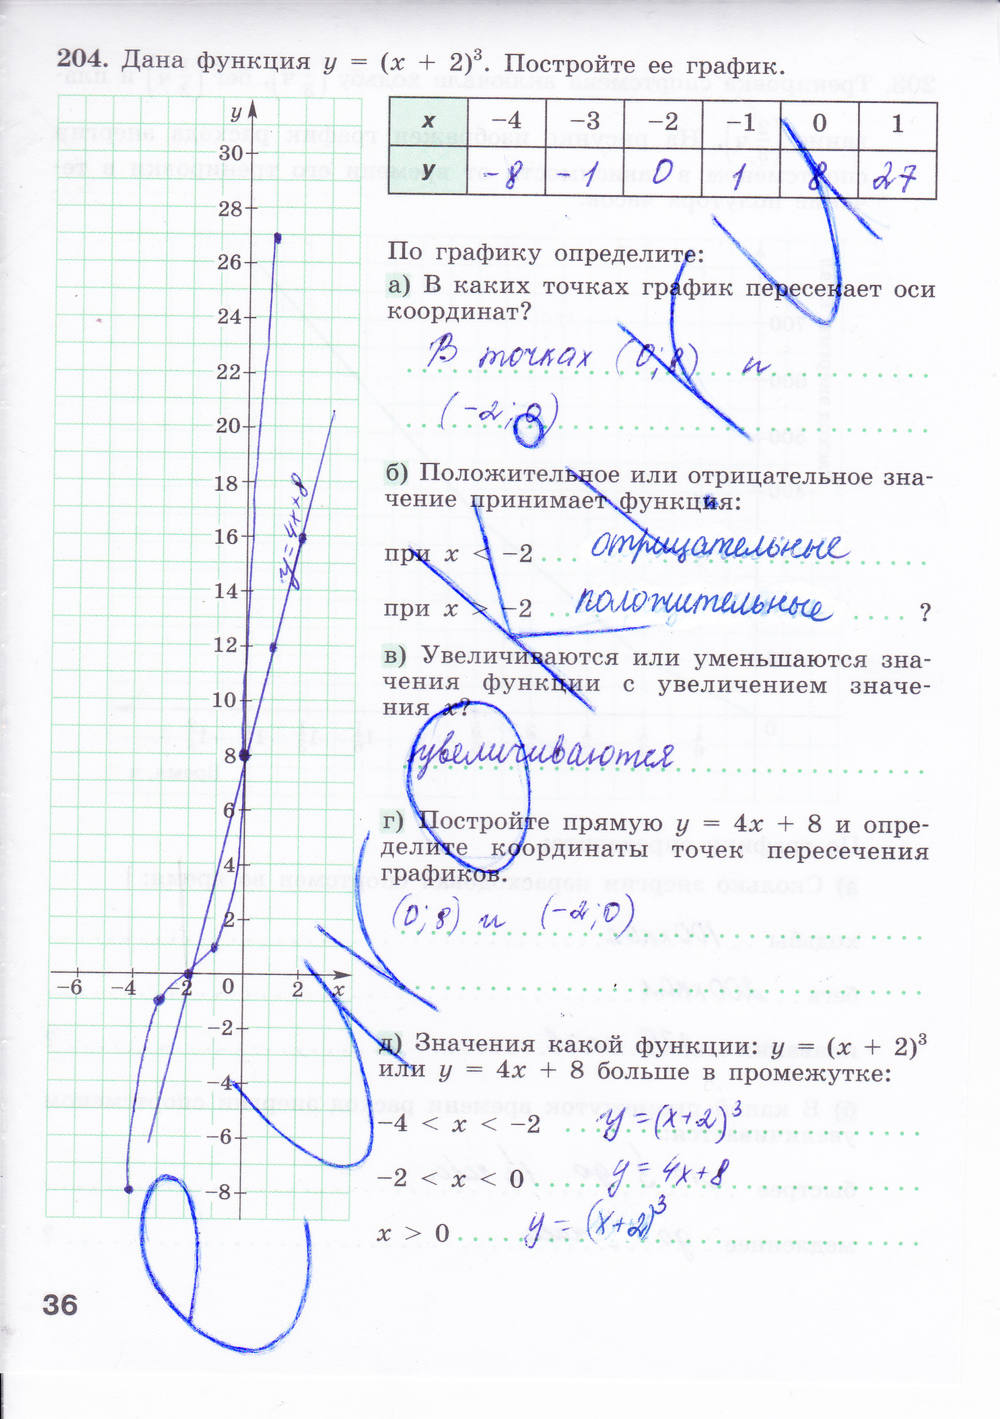 204. Дана функция y = (x + 2)³. Постройте ее график.
x −4 −3 −2 −1 0 1
y -8 -1 0 1 8 27
y
30
28
26
24
22
20
18
16
14
12
10
8
6
4
2
−6 −4 −2 0 2 x
−2
−4
−6
−8
y=4x+8
По графику определите:
а) В каких точках график пересекает оси
координат?
В точках (0;8) и
(-2;0)
б) Положительное или отрицательное зна-
чение принимает функция:
при x < −2 отрицательные
при x > −2 положительные ?
в) Увеличиваются или уменьшаются зна-
чения функции с увеличением значе-
ния x?
увеличиваются
г) Постройте прямую y = 4x + 8 и опре-
делите координаты точек пересечения
графиков.
(0;8) и (-2;0)
д) Значения какой функции: y = (x + 2)³
или y = 4x + 8 больше в промежутке:
−4 < x < −2 y=(x+2)³
−2 < x < 0 y=4x+8
x > 0 y=(x+2)³
36